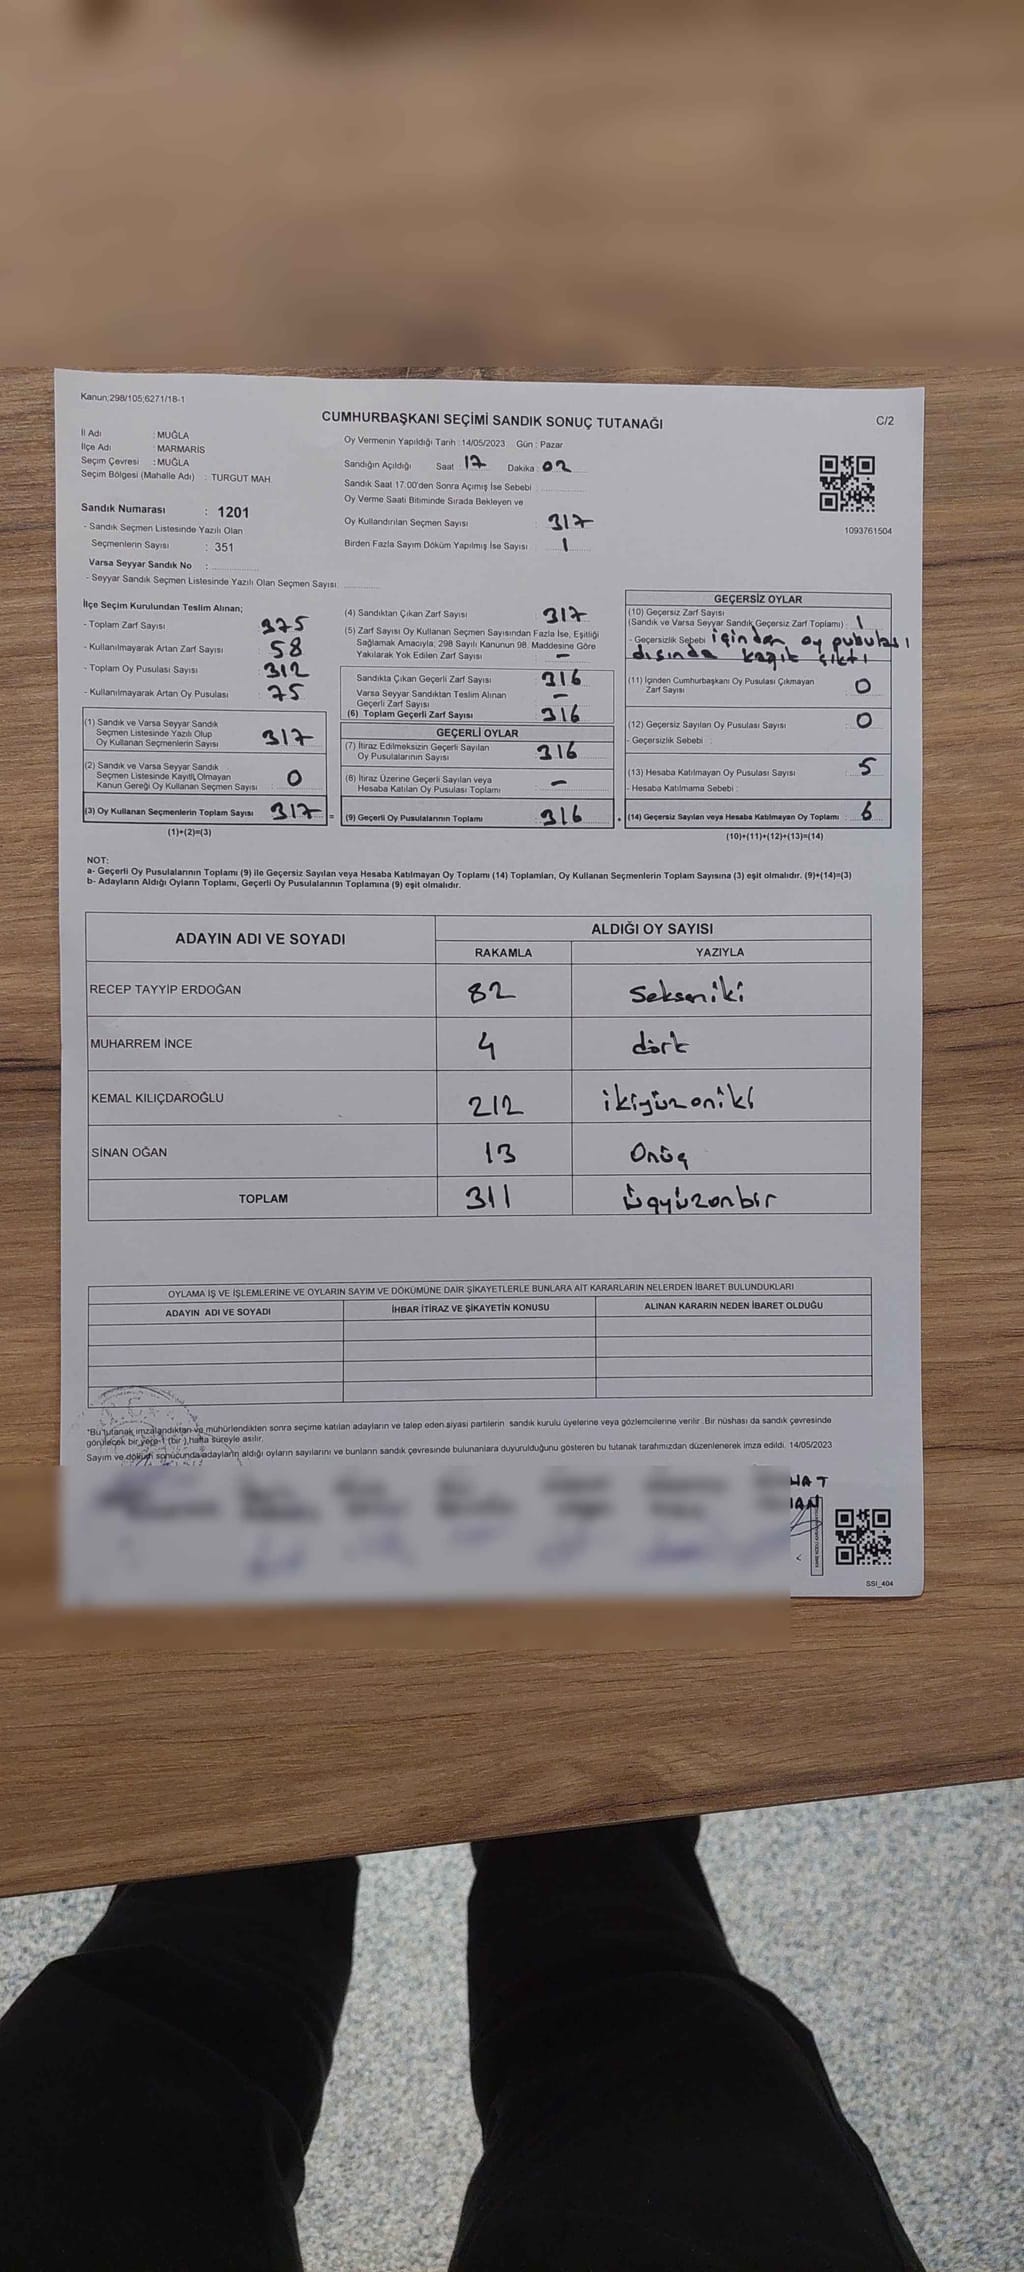 Kanun;298/105;6271/18-1
CUMHURBAŞKANI SEÇİMİ SANDIK SONUÇ TUTANAĞI
C/2
İl Adı : MUĞLA
İlçe Adı : MARMARİS
Seçim Çevresi : MUĞLA
Seçim Bölgesi (Mahalle Adı) : TURGUT MAH.
Oy Vermenin Yapıldığı Tarih : 14/05/2023 Gün : Pazar
Sandığın Açıldığı Saat : 17 Dakika : 02
Sandık Saat 17:00'den Sonra Açımış İse Sebebi :
Oy Verme Saati Bitiminde Sırada Bekleyen ve
Oy Kullandırılan Seçmen Sayısı : 317
Birden Fazla Sayım Döküm Yapılmış İse Sayısı : 1
1093761504
Sandık Numarası : 1201
- Sandık Seçmen Listesinde Yazılı Olan
Seçmenlerin Sayısı : 351
Varsa Seyyar Sandık No :
- Seyyar Sandık Seçmen Listesinde Yazılı Olan Seçmen Sayısı:
İlçe Seçim Kurulundan Teslim Alınan;
- Toplam Zarf Sayısı : 375
- Kullanılmayarak Artan Zarf Sayısı : 58
- Toplam Oy Pusulası Sayısı : 312
- Kullanılmayarak Artan Oy Pusulası : 75
(1) Sandık ve Varsa Seyyar Sandık
Seçmen Listesinde Yazılı Olup
Oy Kullanan Seçmenlerin Sayısı : 317
(2) Sandık ve Varsa Seyyar Sandık
Seçmen Listesinde Kayıtlı Olmayan
Kanun Gereği Oy Kullanan Seçmen Sayısı : 0
(3) Oy Kullanan Seçmenlerin Toplam Sayısı : 317 =
(1)+(2)=(3)
(4) Sandıktan Çıkan Zarf Sayısı : 317
(5) Zarf Sayısı Oy Kullanan Seçmen Sayısından Fazla İse, Eşitliği
Sağlamak Amacıyla, 298 Sayılı Kanunun 98. Maddesine Göre
Yakılarak Yok Edilen Zarf Sayısı : -
Sandıkta Çıkan Geçerli Zarf Sayısı : 316
Varsa Seyyar Sandıktan Teslim Alınan
Geçerli Zarf Sayısı : -
(6) Toplam Geçerli Zarf Sayısı : 316
GEÇERLİ OYLAR
(7) İtiraz Edilmeksizin Geçerli Sayılan
Oy Pusulasının Sayısı : 316
(8) İtiraz Üzerine Geçerli Sayılan veya
Hesaba Katılan Oy Pusulası Toplamı : -
(9) Geçerli Oy Pusulalarının Toplamı : 316 +
GEÇERSİZ OYLAR
(10) Geçersiz Zarf Sayısı
(Sandık ve Varsa Seyyar Sandık Geçersiz Zarf Toplamı) : 1
- Geçersizlik Sebebi : içinden oy pubulası
dışında kağıt çıktı
(11) İçinden Cumhurbaşkanı Oy Pusulası Çıkmayan
Zarf Sayısı : 0
(12) Geçersiz Sayılan Oy Pusulası Sayısı : 0
- Geçersizlik Sebebi :
(13) Hesaba Katılmayan Oy Pusulası Sayısı : 5
- Hesaba Katılmama Sebebi :
(14) Geçersiz Sayılan veya Hesaba Katılmayan Oy Toplamı : 6
(10)+(11)+(12)+(13)=(14)
NOT:
a- Geçerli Oy Pusulalarının Toplamı (9) ile Geçersiz Sayılan veya Hesaba Katılmayan Oy Toplamı (14) Toplamları, Oy Kullanan Seçmenlerin Toplam Sayısına (3) eşit olmalıdır. (9)+(14)=(3)
b- Adayların Aldığı Oyların Toplamı, Geçerli Oy Pusulalarının Toplamına (9) eşit olmalıdır.
ADAYIN ADI VE SOYADI ALDIĞI OY SAYISI
RAKAMLA YAZIYLA
RECEP TAYYİP ERDOĞAN 82 Sekseniki
MUHARREM İNCE 4 dört
KEMAL KILIÇDAROĞLU 212 ikiyüzoniki
SİNAN OĞAN 13 Onüç
TOPLAM 311 üçyüzonbir
OYLAMA İŞ VE İŞLEMLERİNE VE OYLARIN SAYIM VE DÖKÜMÜNE DAİR ŞİKAYETLERLE BUNLARA AİT KARARLARIN NELERDEN İBARET BULUNDUKLARI
ADAYIN ADI VE SOYADI İHBAR İTİRAZ VE ŞİKAYETİN KONUSU ALINAN KARARIN NEDEN İBARET OLDUĞU
*Bu tutanak imzalandıktan ve mühürlendikten sonra seçime katılan adayların ve talep eden siyasi partilerin sandık kurulu üyelerine veya gözlemcilerine verilir. Bir nüshası da sandık çevresinde
görülecek bir yere 1 (bir) hafta süreyle asılır.
Sayım ve döküm sonucunda adayların aldığı oyların sayılarını ve bunların sandık çevresinde bulunanlara duyurulduğunu gösteren bu tutanak tarafımızdan düzenlenerek imza edildi. 14/05/2023
SSI_404